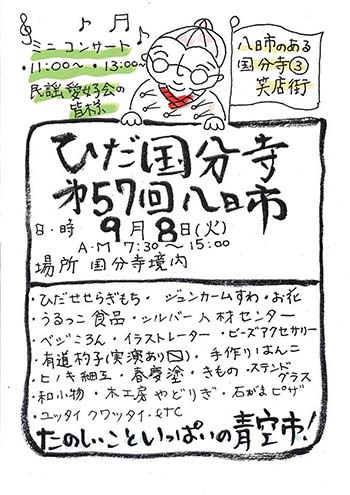 ミニコンサート
・11:00〜 ・13:00〜
民謡愛好会の
皆様
八日市のある
国分寺③
笑店街
ひだ国分寺
オ57回八日市
日・時 9月8日(火)
A・M 7:30〜15:00
場所 国分寺境内
・ひだせせらぎもち・ジュンカームすわ・お花
・うるっこ食品・シルバー人材センター
・ベジころん・イラストレーター・ビーズアクセサリー
・有道杓子(実演あり〼)・手作りはんこ
・ヒノキ細工・春慶塗・きもの・ステンドグラス
・和小物・木工房やどりぎ・石がまピザ
・ユッタイクワッタイ・ETC
たのしいこといっぱいの青空市!